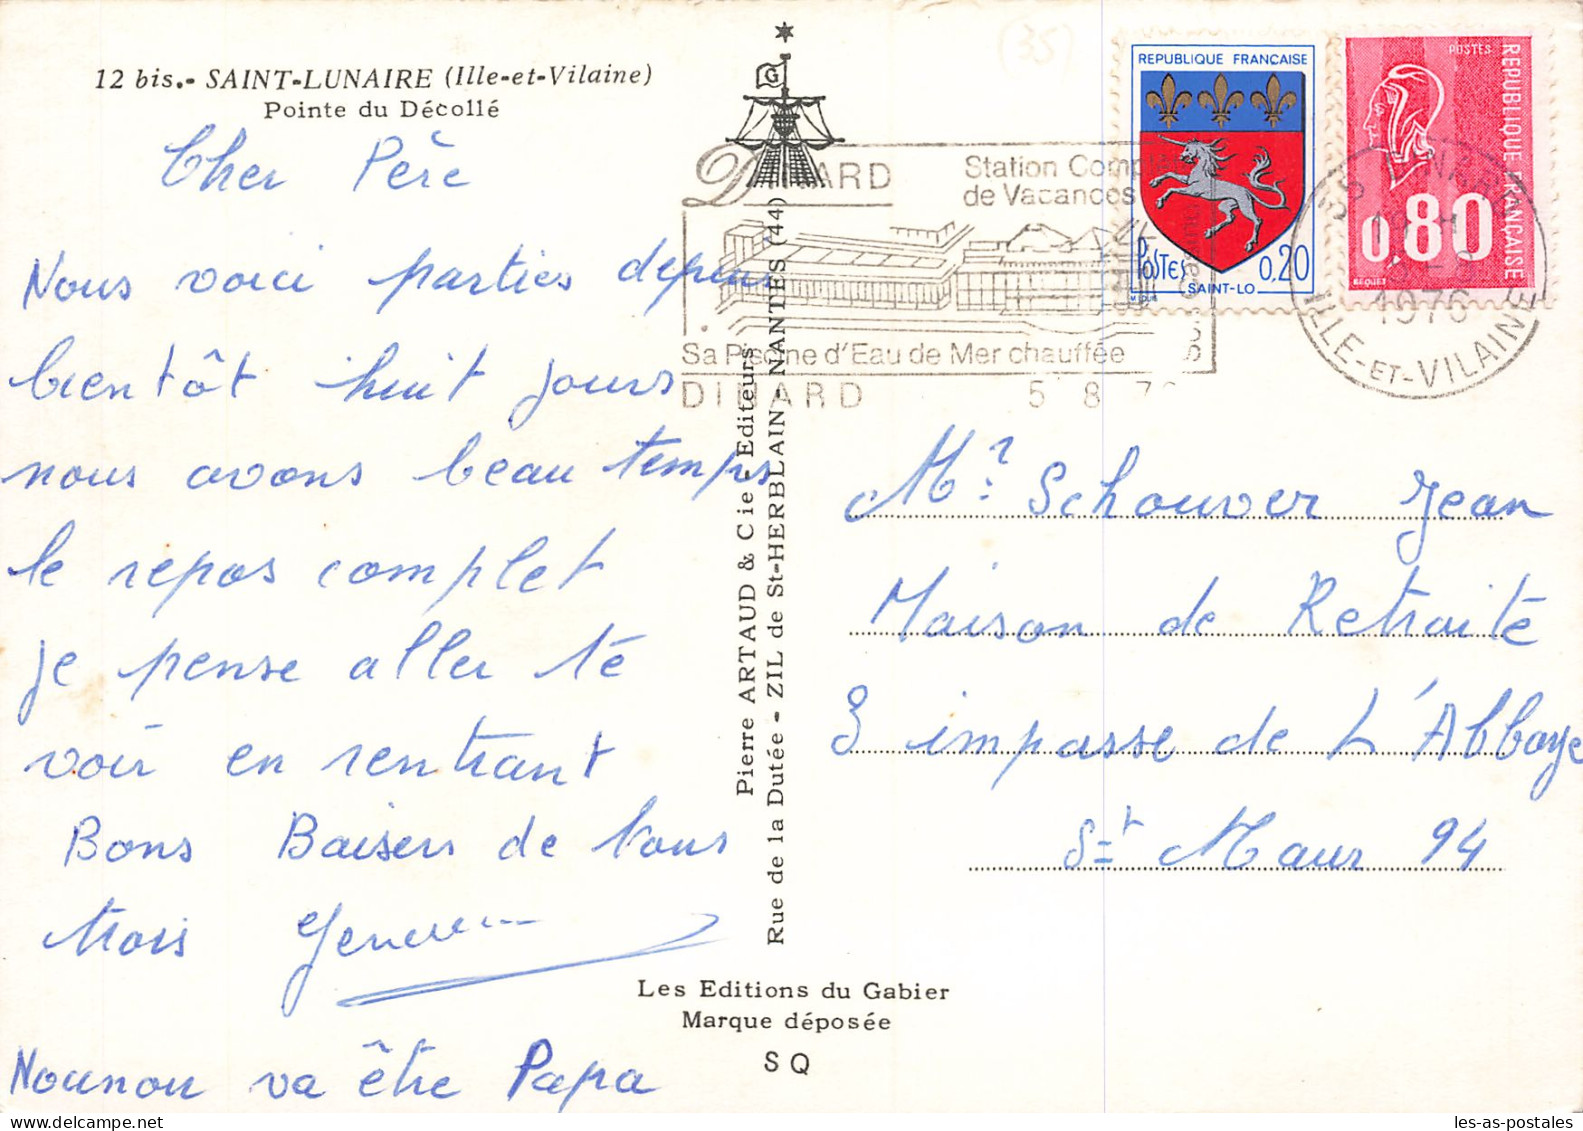 12 bis.- SAINT-LUNAIRE (Ille-et-Vilaine)
Pointe du Décollé
Cher Père
Nous voici parties depuis
bientôt huit jours
nous avons beau temps
le repos complet
je pense aller te
voir en rentrant
Bons Baisers de tous
trois
Nounou va être Papa
Pierre ARTAUD & Cie - Editeurs
Rue de la Dutée - ZIL de St-HERBLAIN - NANTES (44)
Les Editions du Gabier
Marque déposée
SQ
G
(35)
DINARD
Station
de Vacances
Sa Piscine d'Eau de Mer chauffée
DINARD 5 8
REPUBLIQUE FRANÇAISE
POSTES
0,20
SAINT-LO
POSTES
REPUBLIQUE FRANÇAISE
0,80
BEQUET
1976
ILLE-ET-VILAINE
Mr Schouver Jean
Maison de Retraite
3 impasse de L'Abbaye
St Maur 94
les-as-postales